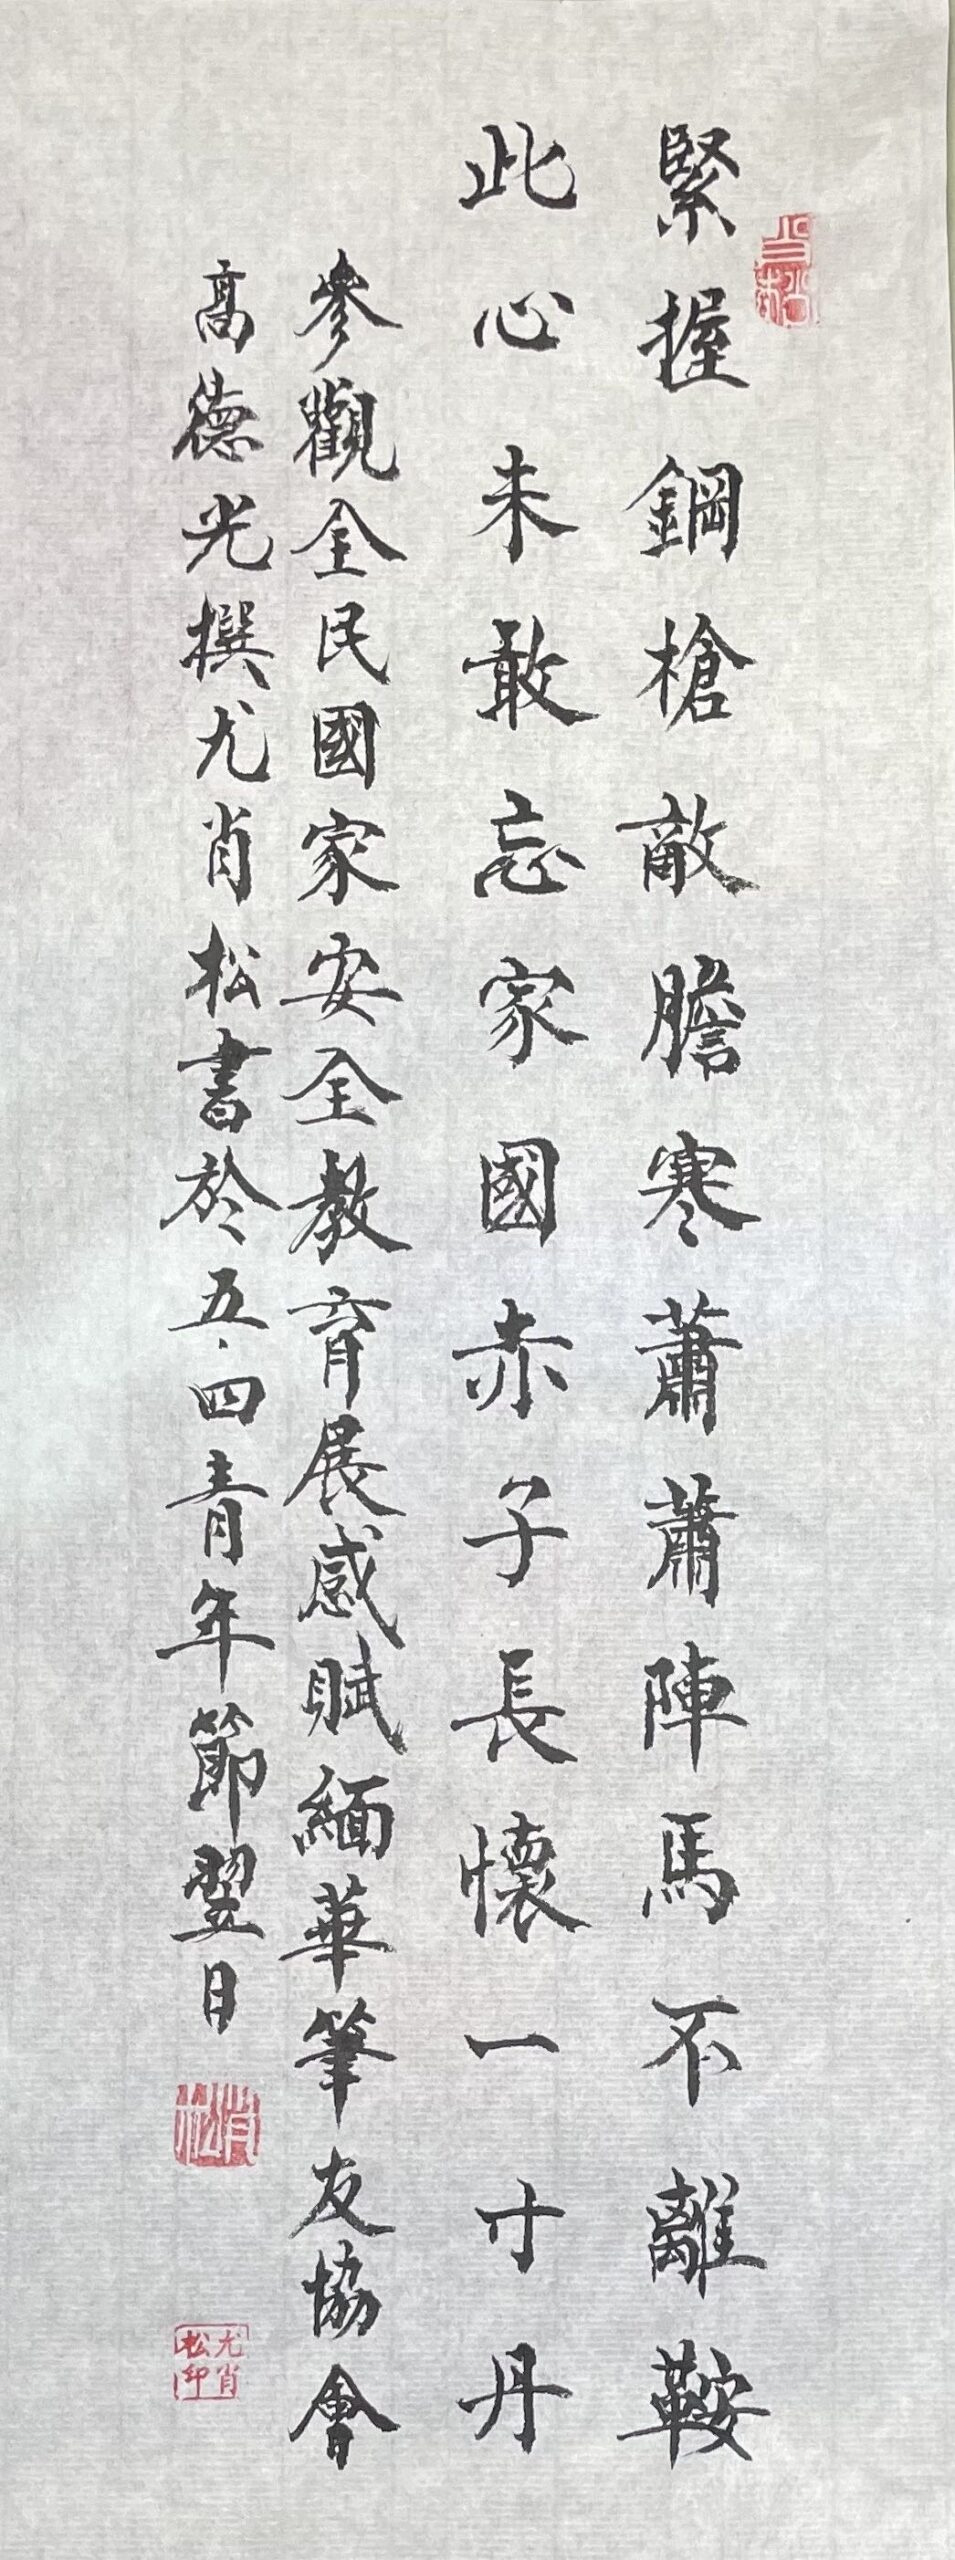 緊握鋼槍敵膽寒蕭蕭陣馬不離鞍
此心未敢忘家國赤子長懷一寸丹
參觀全民國家安全教育展感賦緬華筆友協會
高德光撰尤肖松書於五·四青年節翌日
肖松
尤肖松印